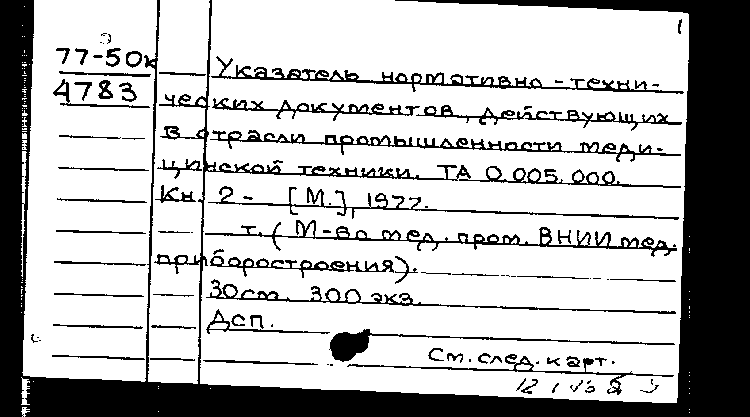 1
77-50к
4783
Указатель нормативно-техни-
ческих документов, действующих
в отрасли промышленности меди-
цинской техники. ТА 0.005.000.
Кн. 2- [М.], 1977.
т. (М-во мед. пром. ВНИИ мед.
приборостроения).
30см. 300 экз.
Дсп.
См. след. карт.